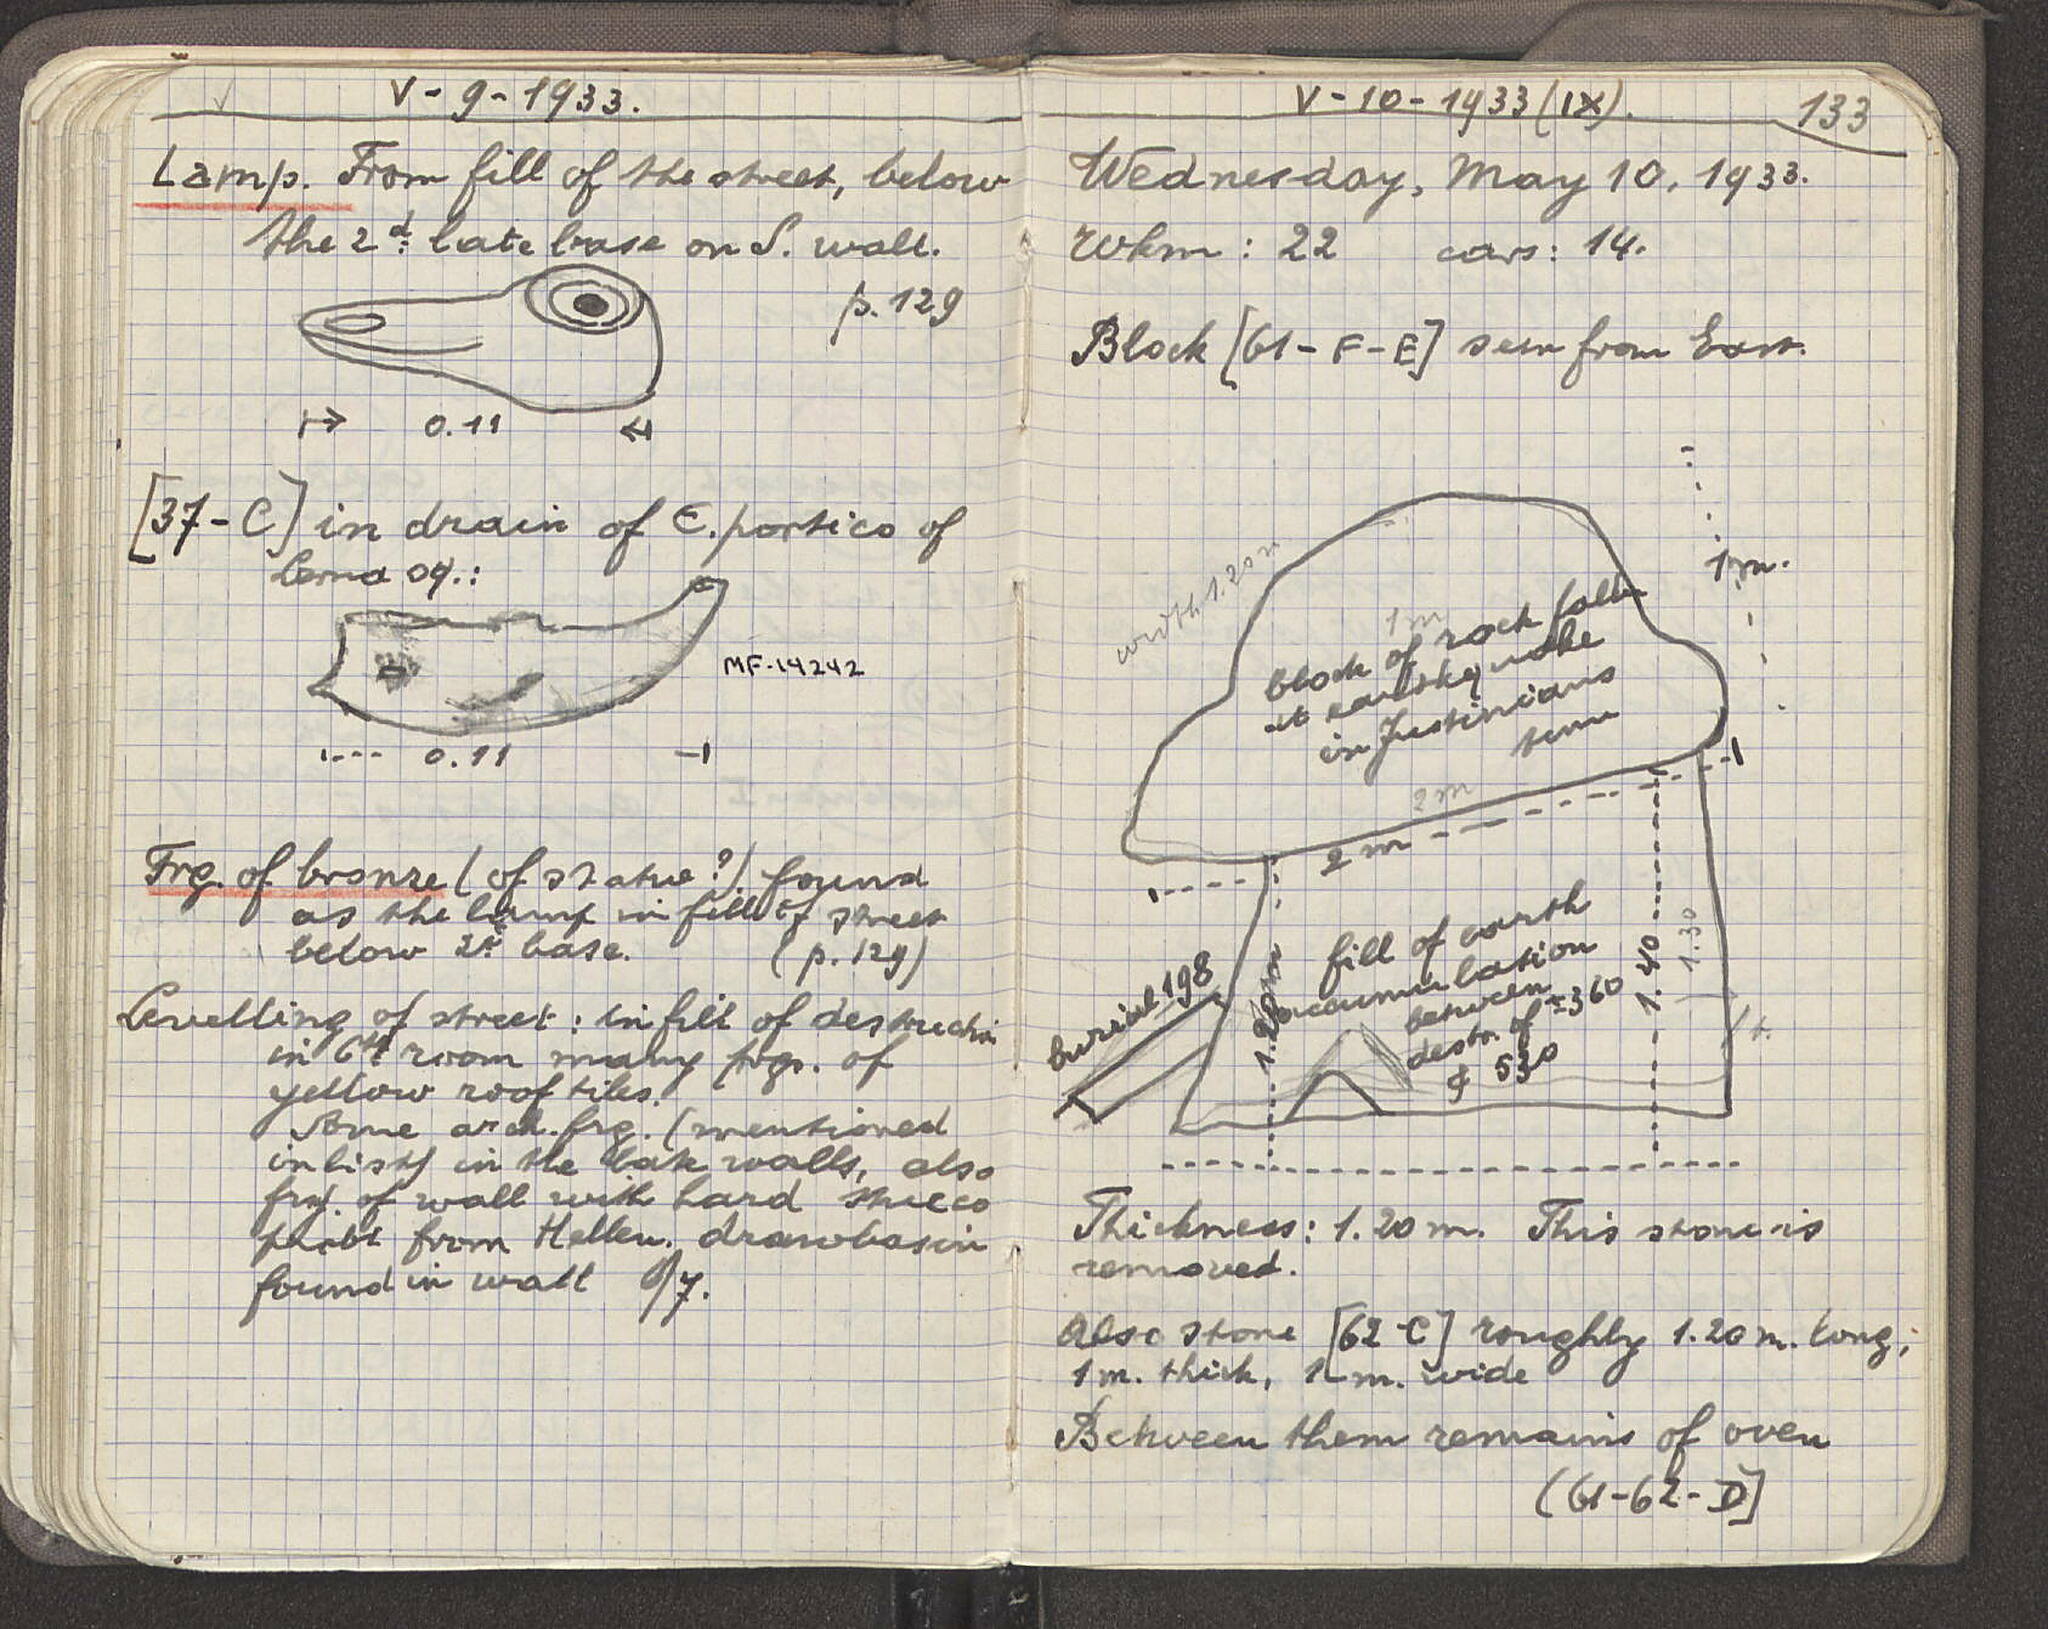 V-9-1933.
Lamp. From fill of the street, below
the 2d. late base on S. wall.
p. 129
0.11
[37-C] in drain of E. portico of
MF-14242
0.11
Frg. of bronze (of statue?) found
as the lamp in fill of street
below 2d base. (p. 129)
Levelling of street: in fill of destruction
in 6th room many frgs. of
yellow roof tiles.
Some arch. frg. (mentioned
in list) in the late walls, also
frg. of wall with hard stucco
from Hellen. drawbasin
found in wall 6/7.
V-10-1933 (IX). 133
Wednesday, May 10, 1933.
Wkm: 22 cars: 14.
Block [61-F-E] seen from East.
1 m.
width 1.20 m
1 m
block of rock fallen
at earthquake
in Justinians
time
2 m
2 m
fill of earth
accumulation
between
destr. of ±360
& 530
burial 198
1.20 m
1.40
1.30
Thickness: 1.20 m. This stone is
removed.
Also stone [62-C] roughly 1.20 m. long,
1 m. thick, 1 m. wide
Between them remains of oven
(61-62-D]